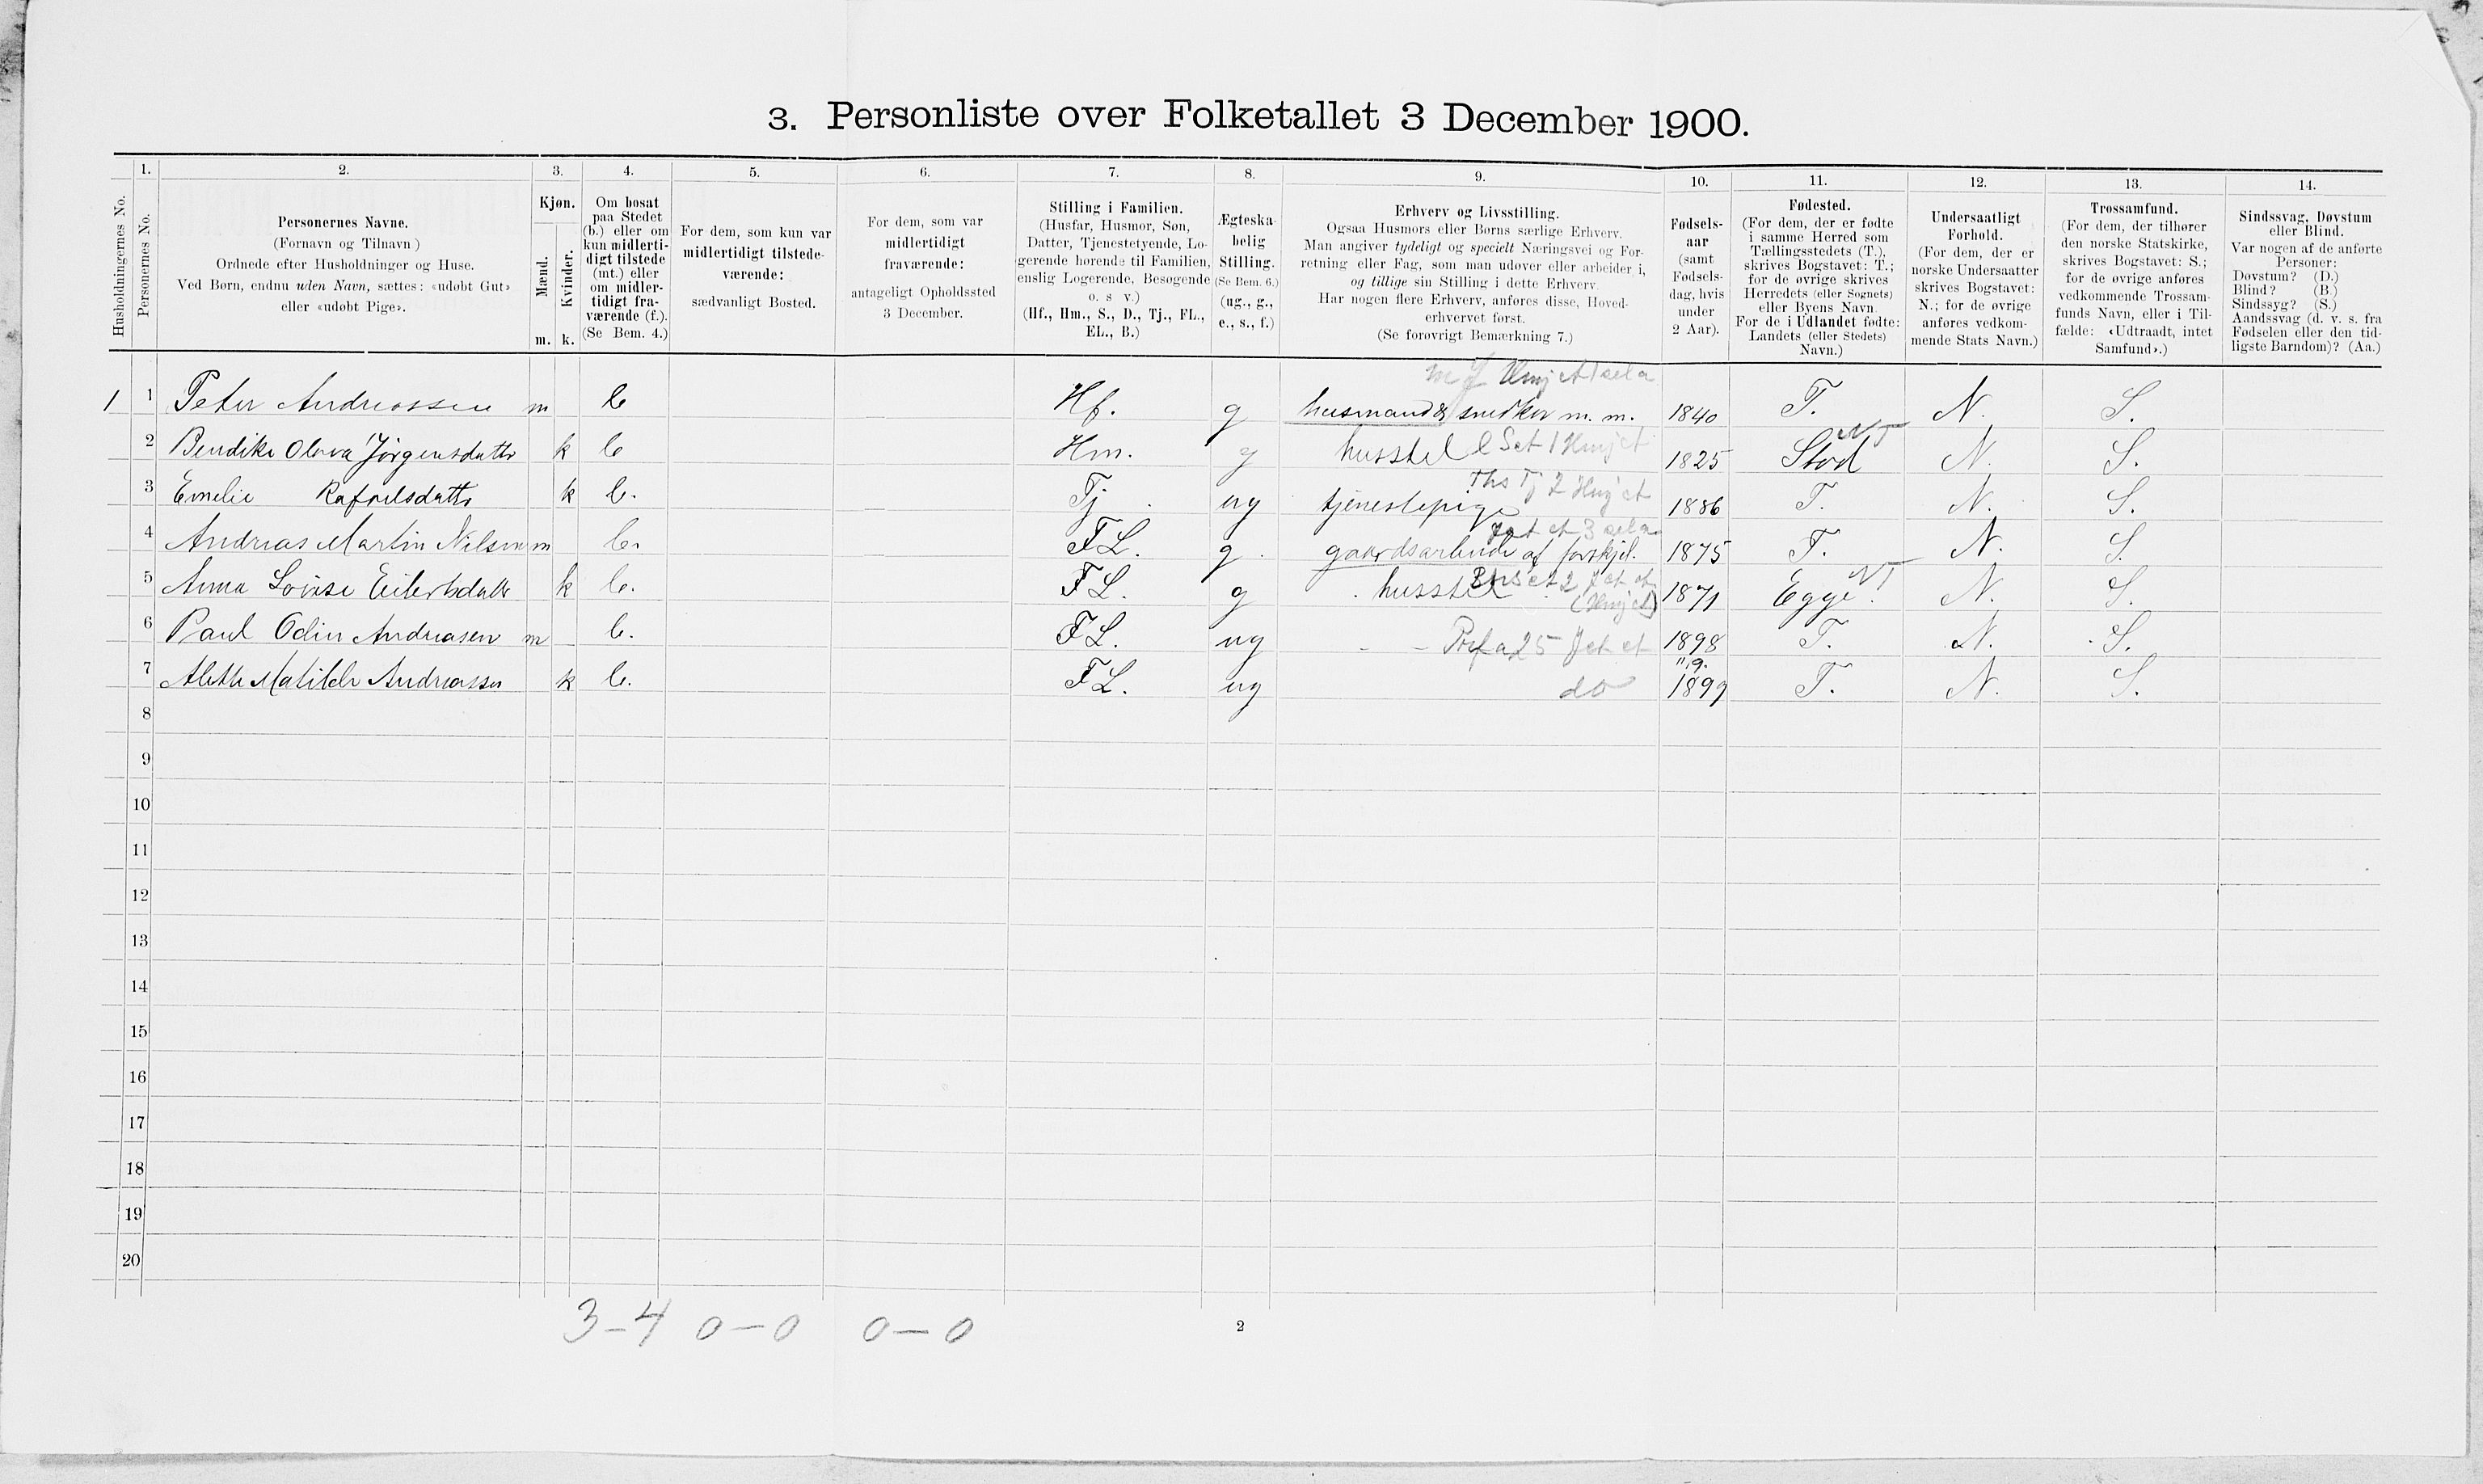 3. Personliste over Folketallet 3 December 1900.
Husholdningernes No.
1.
Personernes No.
2.
Personernes Navne.
(Fornavn og Tilnavn)
Ordnede efter Husholdninger og Huse.
Ved Børn, endnu uden Navn, sættes: «udøbt Gut»
eller «udøbt Pige».
3.
Kjøn.
Mænd.
Kvinder.
m. k.
4.
Om bosat
paa Stedet
(b.) eller om
kun midlerti-
digt tilstede
(mt.) eller
om midler-
tidigt fra-
værende (f.).
(Se Bem. 4.)
5.
For dem, som kun var
midlertidigt tilstede-
værende:
sædvanligt Bosted.
6.
For dem, som var
midlertidigt
fraværende:
antageligt Opholdssted
3 December.
7.
Stilling i Familien.
(Husfar, Husmor, Søn,
Datter, Tjenestetyende, Lo-
gerende hørende til Familien,
enslig Logerende, Besøgende
o. s v.)
(Hf., Hm., S., D., Tj., FL.,
EL., B.)
8.
Ægteska-
belig
Stilling.
(Se Bem. 6.)
(ug., g.,
e., s., f.)
9.
Erhverv og Livsstilling.
Ogsaa Husmors eller Børns særlige Erhverv.
Man angiver tydeligt og specielt Næringsvei og For-
retning eller Fag, som man udøver eller arbeider i,
og tillige sin Stilling i dette Erhverv.
Har nogen flere Erhverv, anføres disse, Hoved-
erhvervet først.
(Se forøvrigt Bemærkning 7.)
10.
Fødsels-
aar
(samt
Fødsels-
dag, hvis
under
2 Aar).
11.
Fødested.
(For dem, der er fødte
i samme Herred som
Tællingsstedets (T.),
skrives Bogstavet: T.;
for de øvrige skrives
Herredets (eller Sognets)
eller Byens Navn.
For de i Udlandet fødte:
Landets (eller Stedets)
Navn.)
12.
Undersaatligt
Forhold.
(For dem, der er
norske Undersaatter
skrives Bogstavet:
N.; for de øvrige
anføres vedkom-
mende Stats Navn.)
13.
Trossamfund.
(For dem, der tilhører
den norske Statskirke,
skrives Bogstavet: S.;
for de øvrige anføres
vedkommende Trossam-
funds Navn, eller i Til-
fælde: «Udtraadt, intet
Samfund».)
14.
Sindssvag, Døvstum
eller Blind.
Var nogen af de anførte
Personer:
Døvstum? (D.)
Blind? (B.)
Sindssyg? (S.)
Aandssvag (d. v. s. fra
Fødselen eller den tid-
ligste Barndom)? (Aa.)
1 1 Peter Andreassen m b Hf. g husmand & snedker m. m. 1840 T. N. S.
2 Bendike Olava Jørgensdatter k b Hm. g husstel 1825 Stod NT N. S.
3 Emelie Rafaelsdatter k b. Tj. ug tjenestepige 1886 T. N. S.
4 Andreas Martin Nilsen m b. FL. g. gaardsarbeide af forskjel. 1875 T. N. S.
5 Anna Lovise Eilertsdatter k b. FL. g husstel 1871 Egge. NT N. S.
6 Paul Odin Andreasen m b. FL. ug 1898 T. N. S.
7 Alette Matilde Andreassen k b. FL. ug do 11/9. 1899 T. N. S.
8
9
10
11
12
13
14
15
16
17
18
19
20
3-4 0-0 0-0
2